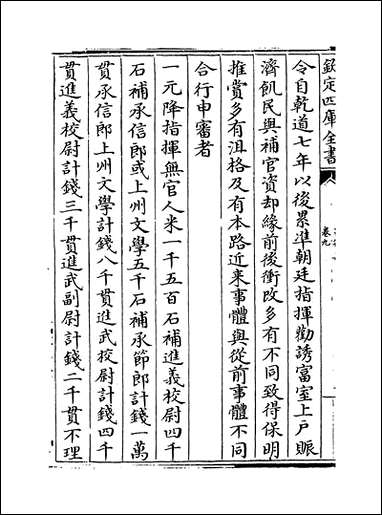 欽定四庫全書
卷九
令自乾道七年以後累準朝廷指揮勸誘富室上戶賑
濟飢民與補官資却緣前後衝改多有不同致得保明
推賞多有沮格及有本路近来事體與從前事體不同
合行申審者
一元降指揮無官人米一千五百石補進義校尉四千
石補承信郎或上州文學五千石補承節郎計錢一萬
貫承信郎上州文學計錢八千貫進武校尉計錢四千
貫進義校尉計錢三千貫進武副尉計錢二千貫不理